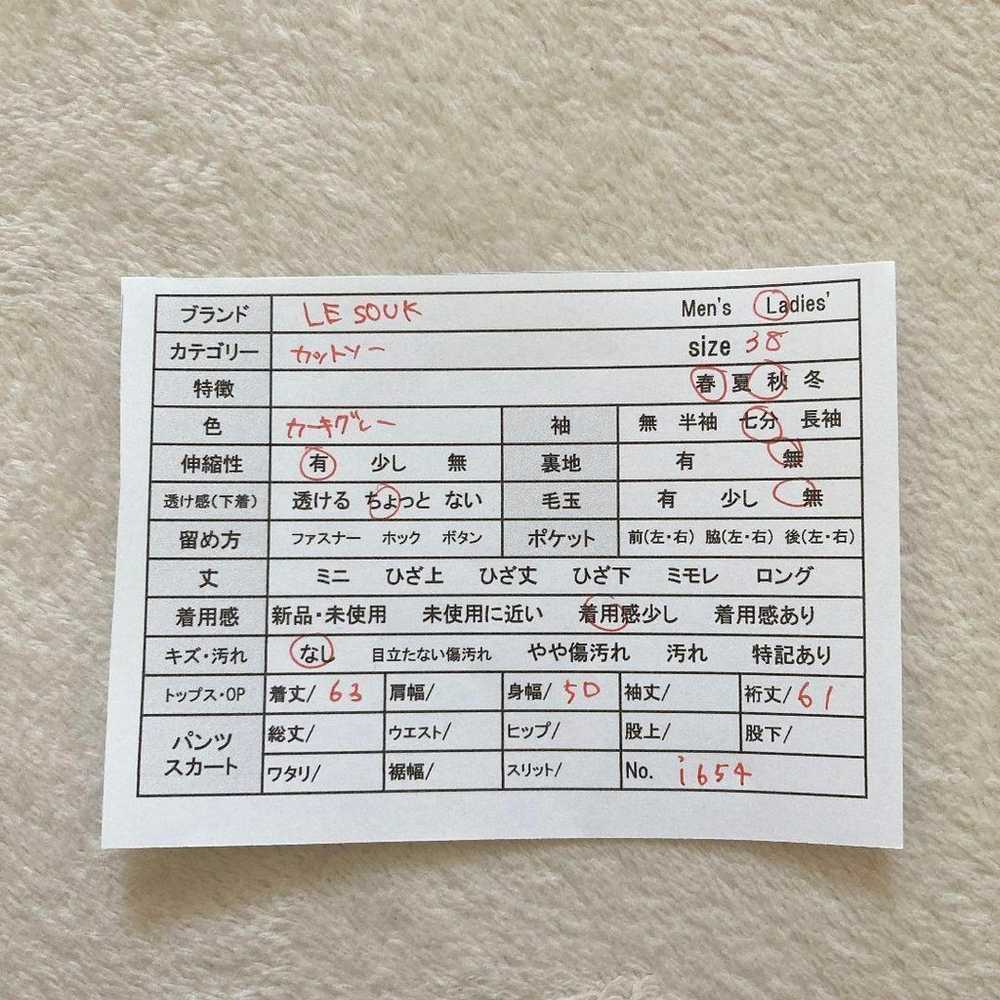 ブランド LE SOUK Men's Ladies'
カテゴリー カットソー size 38
特徴 春 夏 秋 冬
色 カーキグレー 袖 無 半袖 七分 長袖
伸縮性 有 少し 無 裏地 有 無
透け感(下着) 透ける ちょっと ない 毛玉 有 少し 無
留め方 ファスナー ホック ボタン ポケット 前(左・右) 脇(左・右) 後(左・右)
丈 ミニ ひざ上 ひざ丈 ひざ下 ミモレ ロング
着用感 新品・未使用 未使用に近い 着用感少し 着用感あり
キズ・汚れ なし 目立たない傷汚れ やや傷汚れ 汚れ 特記あり
トップス・OP 着丈/ 63 肩幅/ 身幅/ 50 袖丈/ 裄丈/ 61
パンツ スカート 総丈/ ウエスト/ ヒップ/ 股上/ 股下/
ワタリ/ 裾幅/ スリット/ No. i654